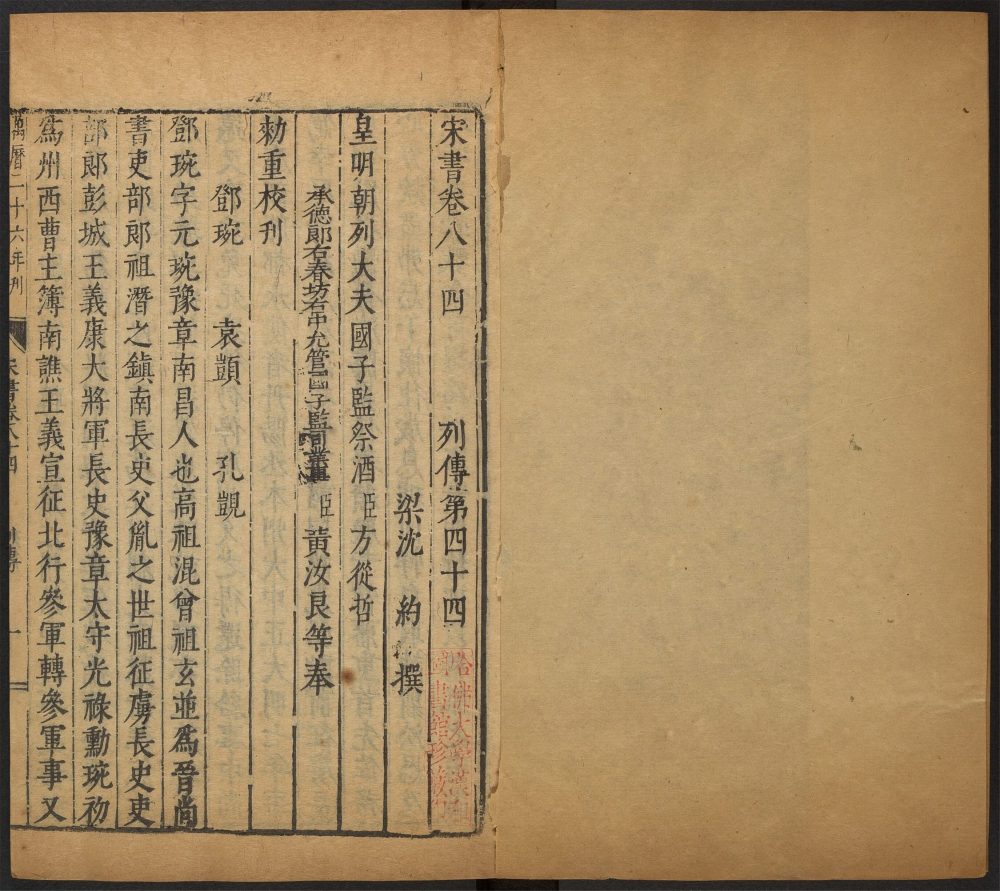 宋書卷八十四 列傳第四十四
梁沈 約 撰
皇明朝列大夫國子監祭酒臣方從哲
承德郎右春坊右中允管國子監司業事臣黃汝良等奉
勑重校刊
鄧琬 袁顗 孔覬
鄧琬字元琬豫章南昌人也高祖混曾祖玄並爲晉尚
書吏部郎祖潛之鎮南長史父胤之世祖征虜長史吏
部郎彭城王義康大將軍長史豫章太守光祿勳琬初
爲州西曹主簿南譙王義宣征北行參軍轉參軍事又
萬曆二十六年刊 宋書卷八十四 列傳 一
哈佛大學漢和圖書館珍藏印